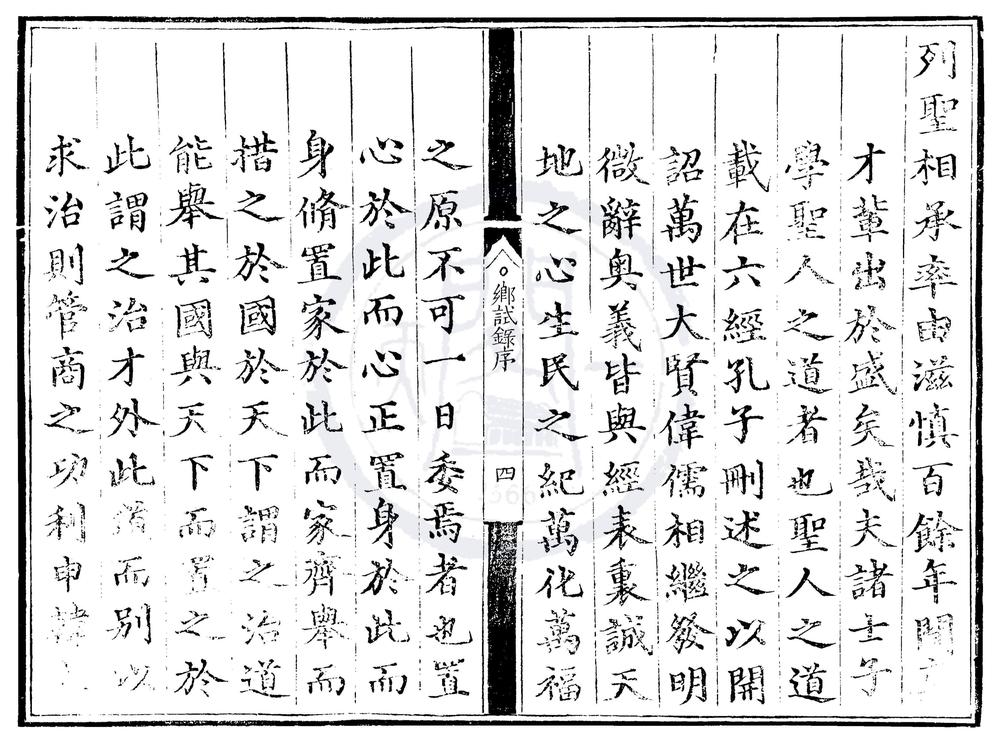 列聖相承率由滋慎百餘年間
才輩出於盛矣哉夫諸士子
學聖人之道者也聖人之道
載在六經孔子刪述之以開
詔萬世大賢偉儒相繼發明
微辭奥義皆與經表裏誠天
地之心生民之紀萬化萬福
鄉試錄序
四
之原不可一日委焉者也置
心於此而心正置身於此而
身脩置家於此而家齊舉而
措之於國於天下謂之治道
能舉其國與天下而置之於
此謂之治才外此道而别以
求治則管商之功利申韓之